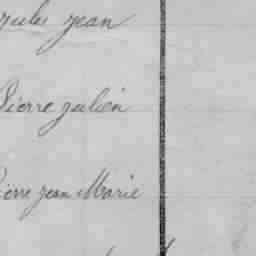 Jules Jean
Pierre Julien
Pierre Jean Marie